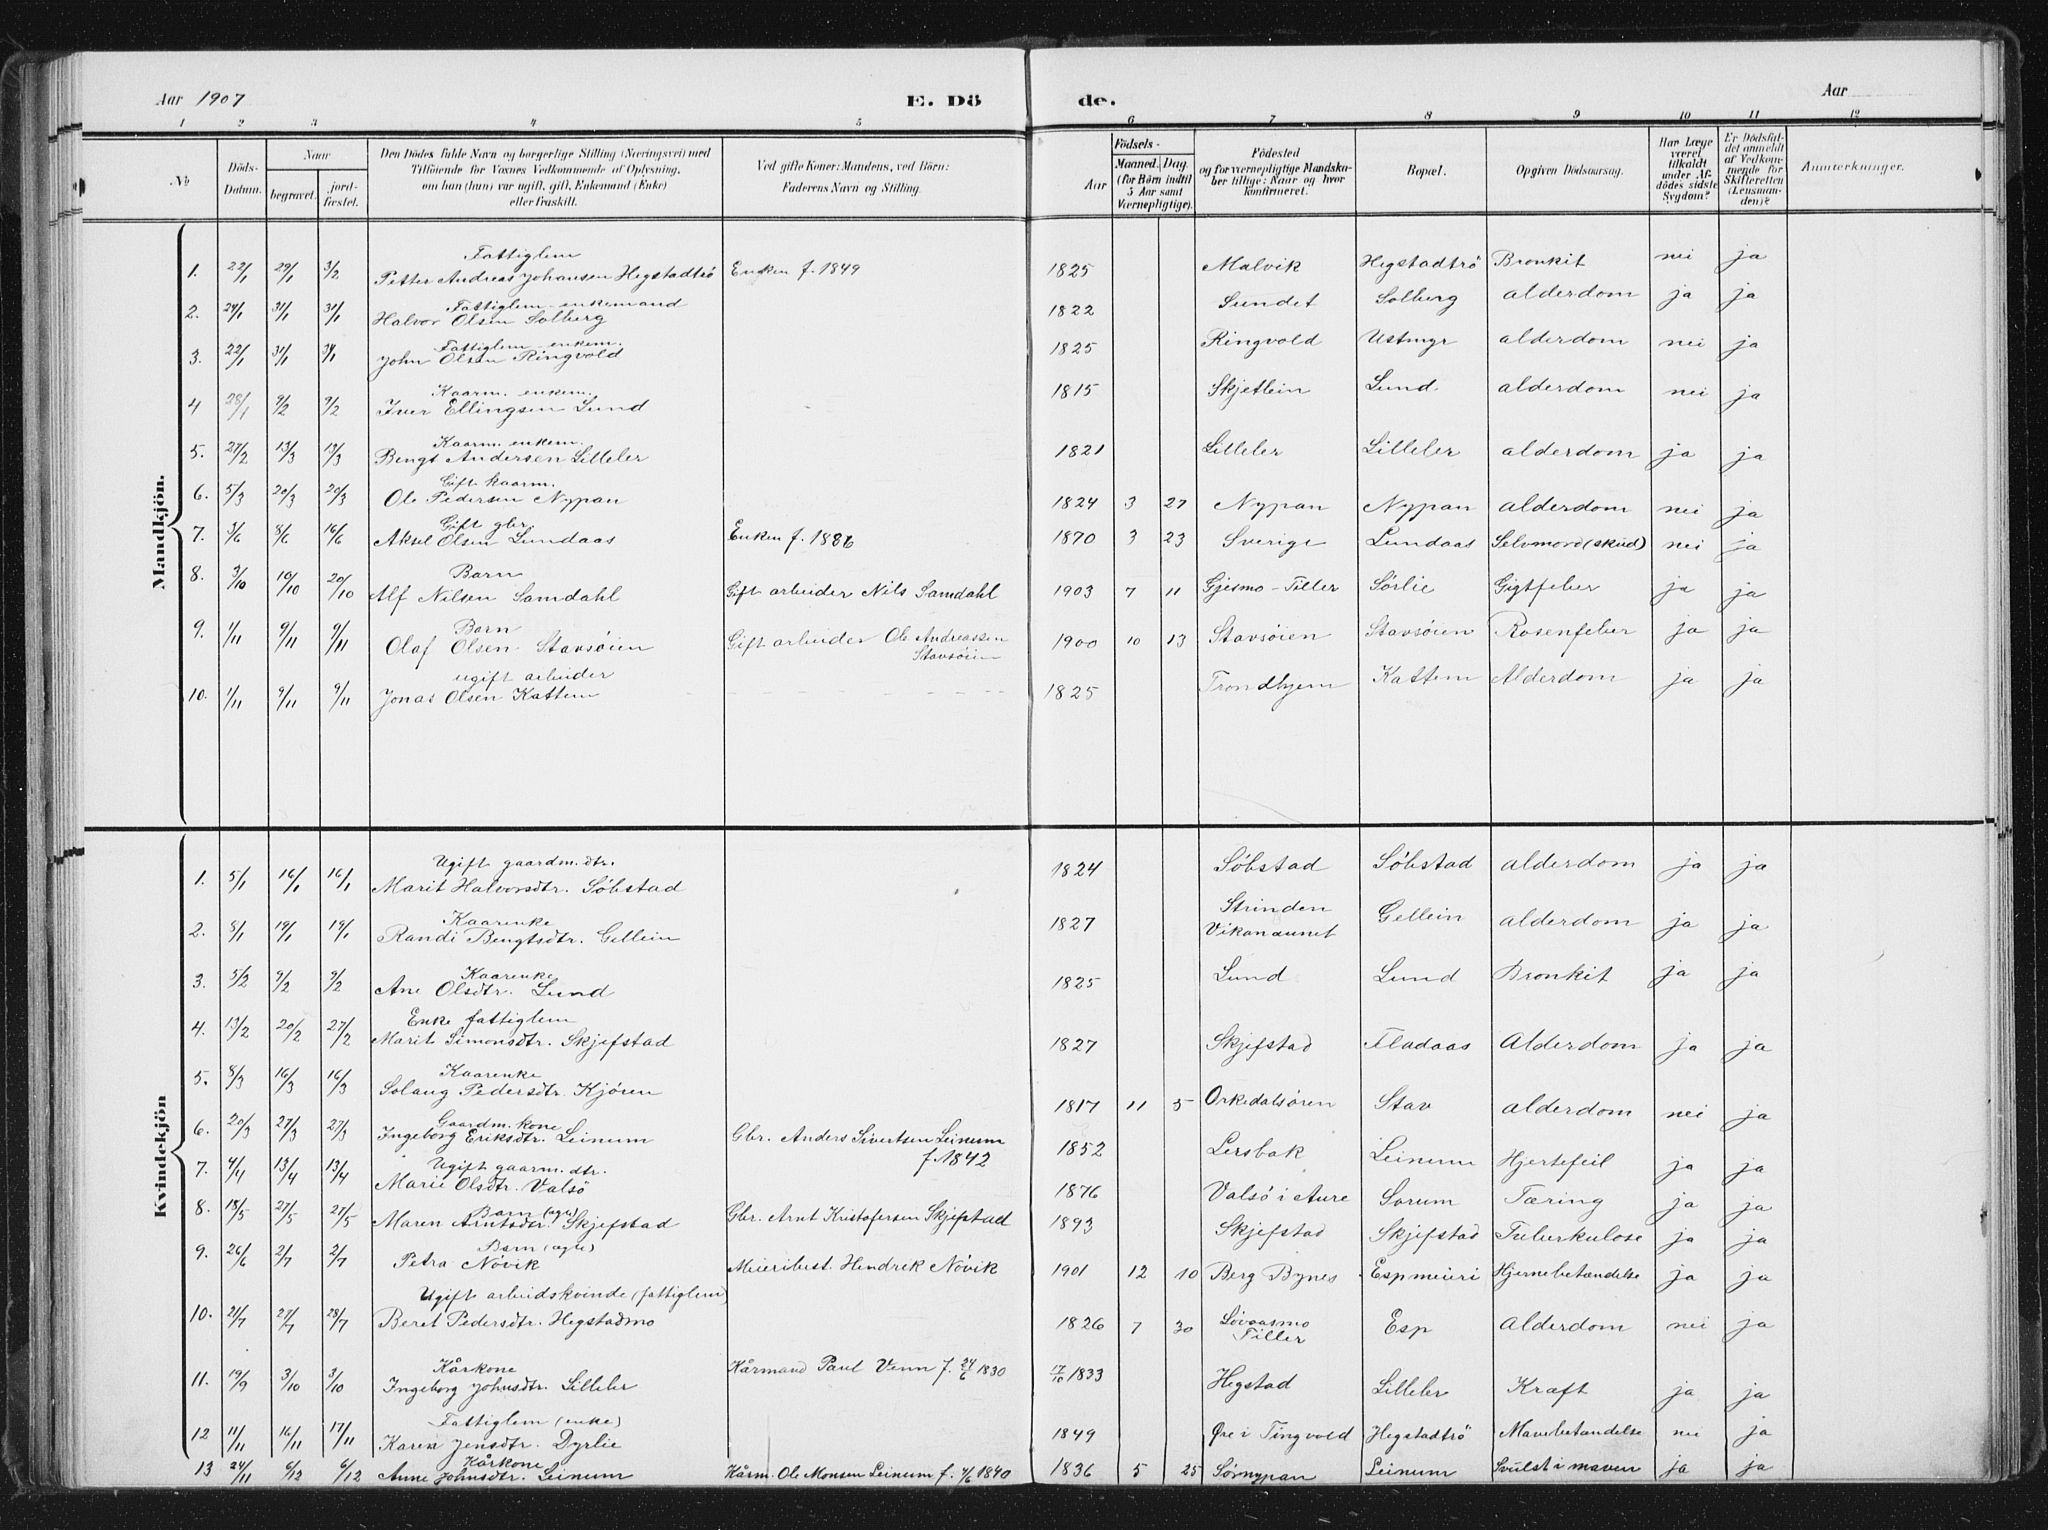 Aar 1907 E. Dö de. Aar
1 2 3 4 5 6 7 8 9 10 11 12
No Döds-Datum. Naar begravet. jord-fæstet. Den Dödes fulde Navn og borgerlige Stilling (Næringsvei) med Tilföiende for Voxnes Vedkommende af Oplysning, om han (hun) var ugift, gift, Enkemand (Enke) eller fraskilt. Ved gifte Koner: Mandens, ved Börn: Faderens Navn og Stilling. Födsels- Aar Maaned. Dag. (for Börn indtil 5 Aar samt Værnepligtige). Födested og for værnepligtige Mandskaber tillige: Naar og hvor konfirmeret. Bopæl. Opgiven Dödsaarsag. Har Læge været tilkaldt under Afdödes sidste Sygdom? Er Dödsfaldet anmeldt af Vedkommende for Skifteretten (Lensmanden)? Anmerkninger.
Mandkjön.
Fattiglem
1. 22/1 29/1 3/2 Petter Andreas Johansen Hegstadtrö Enken f. 1849 1825 Malvik Hegstadtrö Bronkit nei ja
Fattiglem-enkemand
2. 24/1 31/1 31/1 Halvor Olsen Solberg 1822 Sundet Solberg alderdom ja ja
Fattiglem-enkem.
3. 22/1 31/1 31/1 John Olsen Ringvold 1825 Ringvold Ustmyr alderdom nei ja
Kaarm. enkem.
4 28/1 9/2 9/2 Iver Ellingsen Lund 1815 Skjetlein Lund alderdom nei ja
Kaarm. enkem.
5. 27/2 13/3 13/3 Bengt Andersen Lilleler 1821 Lilleler Lilleler alderdom ja ja
Gift kaarm.
6. 5/3 20/3 20/3 Ole Pedersen Nypan 1824 3 27 Nypan Nypan alderdom nei ja
Gift gbr.
7. 3/6 8/6 16/6 Aksel Olsen Lundaas Enken f. 1886 1870 3 23 Sverige Lundaas Selvmord (skud) nei ja
Barn
8. 3/10 10/10 20/10 Alf Nilsen Samdahl Gift arbeider Nils Samdahl 1903 7 11 Gjesmo-Tiller Sørlie Gigtfeber ja ja
Barn
9. 1/11 9/11 9/11 Olaf Olsen Stavsøien Gift arbeider Ole Andreassen Stavsøien 1900 10 13 Stavsøien Stavsøien Rosenfeber ja ja
ugift arbeider
10. 1/11 9/11 9/11 Jonas Olsen Kattem 1825 Trondhjem Kattem Alderdom ja ja
Kvindekjön
Ugift gaardm. dtr.
1. 5/1 16/1 16/1 Marit Halvorsdtr. Söbstad 1824 Söbstad Söbstad alderdom ja ja
Kaarenke
2. 8/1 19/1 19/1 Randi Bengtsdtr. Gellein 1827 Strinden Vikanaunet Gellein alderdom ja ja
Kaarenke
3. 5/2 9/2 9/2 Ane Olsdtr. Lund 1825 Lund Lund Bronkit ja ja
Enke fattiglem
4. 13/2 20/2 27/2 Marit Simonsdtr. Skjefstad 1827 Skjefstad Fladaas Alderdom ja ja
Kaarenke
5. 8/3 16/3 16/3 Solaug Pedersdtr. Kjören 1817 11 5 Orkedalsören Stav alderdom nei ja
Gaardm. kone
6. 20/3 27/3 27/3 Ingeborg Eriksdtr. Leinum Gbr. Anders Sivertsen Leinum f. 1842 1852 Lersbak Leinum Hjertefeil ja ja
Ugift gaarm. dtr.
7. 4/4 13/4 13/4 Marie Olsdtr. Valsö 1876 Valsö i Aure Sorum Tæring ja ja
Barn (egte)
8. 18/5 27/5 27/5 Maren Arntsdtr. Skjefstad Gbr. Arnt Kristofersen Skjefstad 1893 Skjefstad Skjefstad Tuberkulose ja ja
Barn (egte)
9. 26/6 2/7 2/7 Petra Növik Meieribest. Hendrek Növik 1901 12 10 Berg Bynes Esp meieri Hjernebetændelse ja ja
Ugift arbeidskvinde (fattiglem)
10. 21/7 27/7 28/7 Beret Pedersdtr. Hegstadmo 1826 7 30 Løvaasmo Tiller Esp Alderdom nei ja
Kårkone
11. 19/9 3/10 3/10 Ingeborg Johnsdtr. Lilleler Kårmand Paul Venn f. 24/6 1830 17/10 1833 Hegstad Lilleler Kræft ja ja
Fattiglem (enke)
12 11/11 16/11 17/11 Karen Jensdtr. Dyrlie 1849 Øre i Tingvold Hegstadtrö Mavebetændelse nei ja
Kårkone
13 24/11 6/12 6/12 Anne Johnsdtr. Leinum Kårm. Ole Monsen Leinum f. 4/6 1840 1836 5 25 Sørnypan Leinum Svulst i maven ja ja